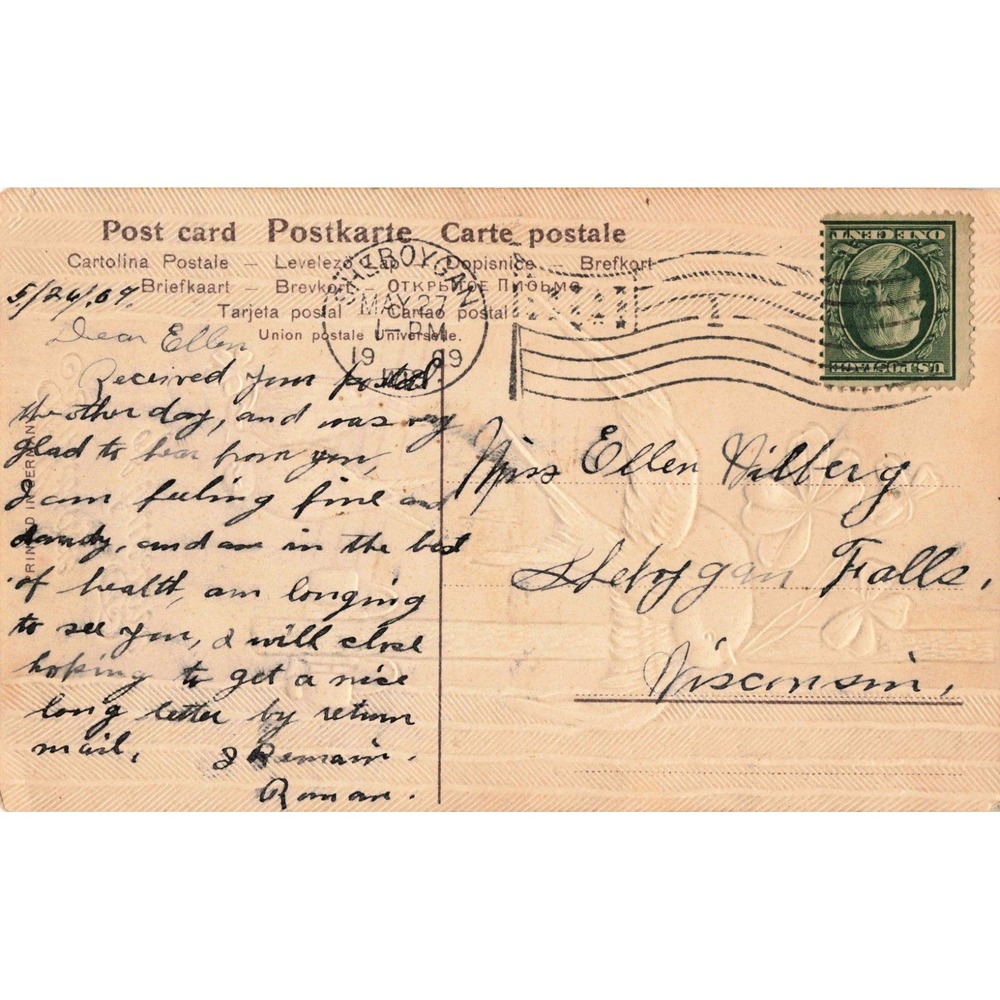 Post card Postkarte Carte postale
Cartolina Postale – Levelező Lap – Dopisnice – Brefkort
Briefkaart – Brevkort – ОТКРЫТОЕ ПИСЬМО
Tarjeta postal – Cartao postal
Union postale Universelle.
SHEBOYGAN
MAY 27
1 - PM
1909
WIS.
ONE CENT
U.S. POSTAGE
PRINTED IN GERMANY
5/26/09.
Dear Ellen
Received your postal
the other day, and was very
glad to hear from you,
I am feeling fine and
dandy, and am in the best
of health, am longing
to see you, I will close
hoping to get a nice
long letter by return
mail, I Remain.
Roman.
Miss Ellen Vilberg,
Sheboygan Falls,
Wisconsin,